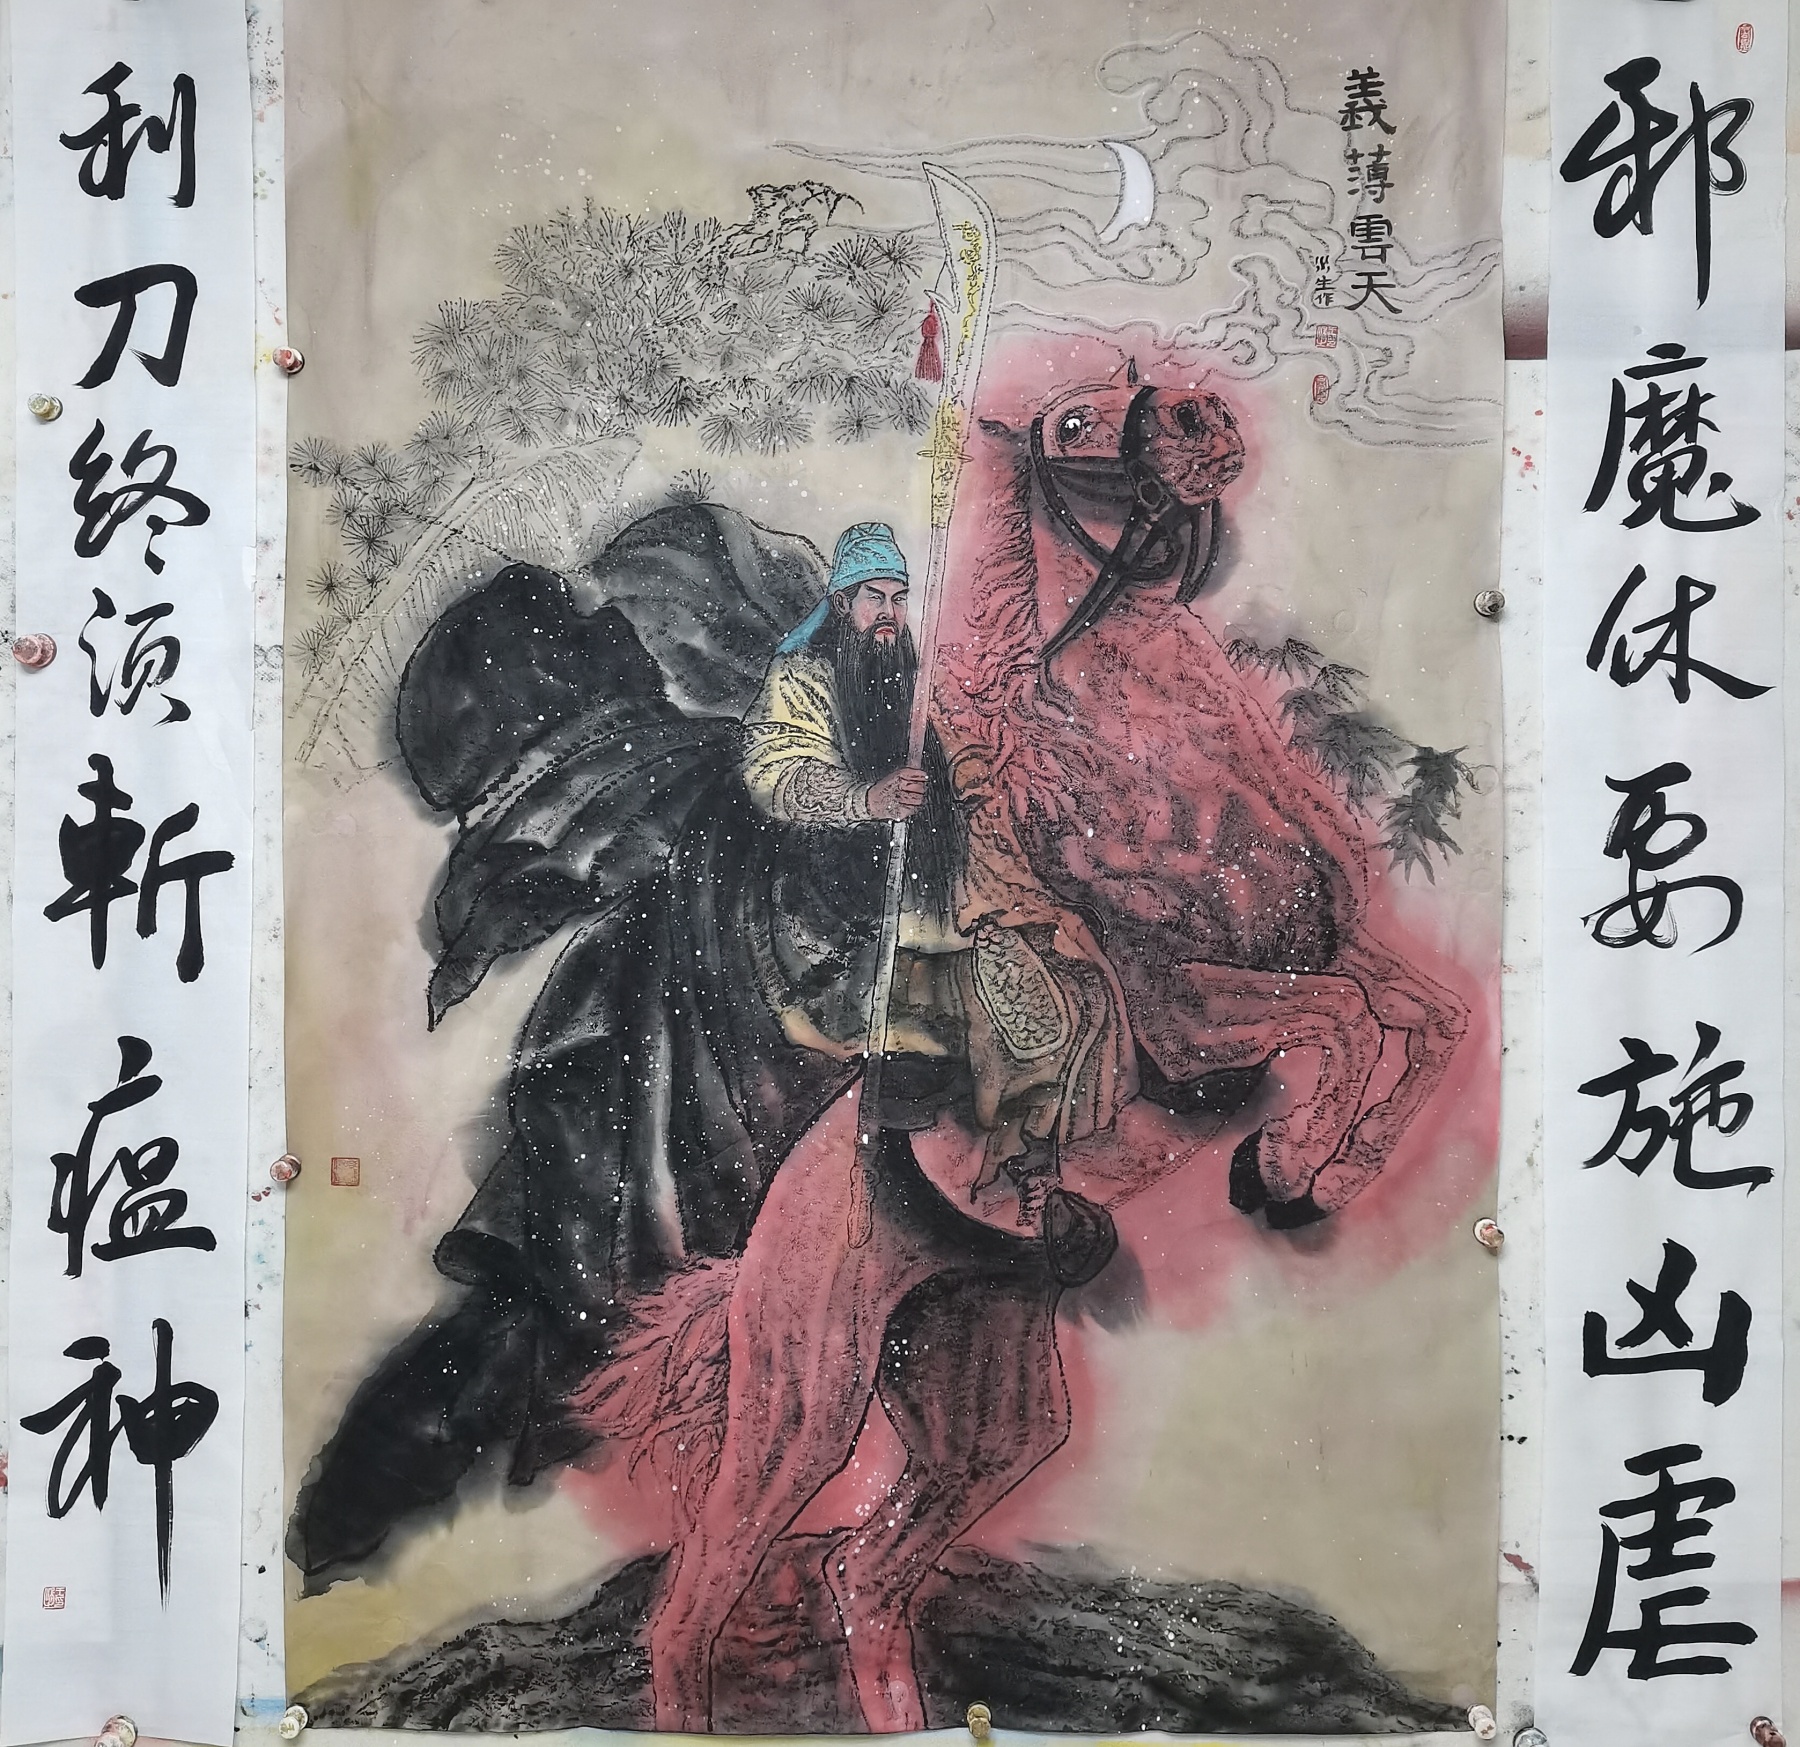 邪魔休要施凶虐
義薄雲天
出生作
利刀终须斬瘟神